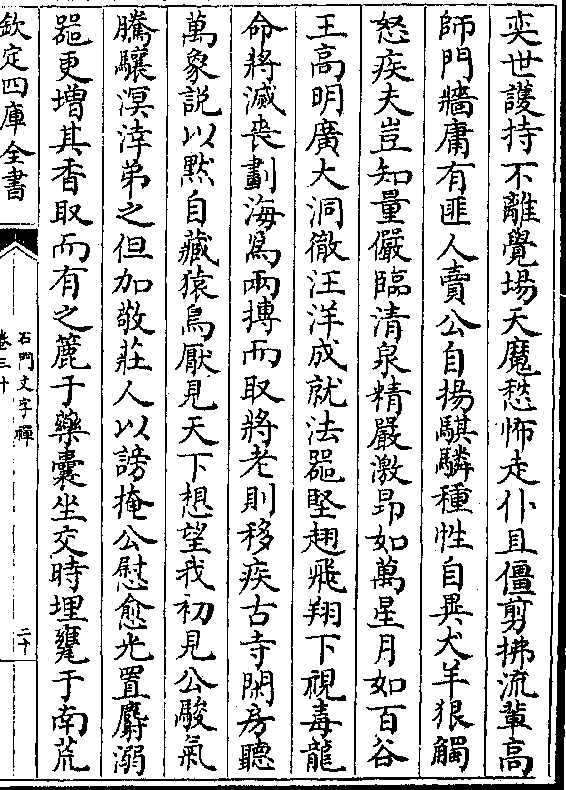 奕世護持不離覺場天魔愁怖走仆且僵剪拂流輩高
師門牆庸有匪人賣公自揚騏驎種性自異犬羊狠觸
怒疾夫豈知量儼臨清泉精嚴激昂如萬星月如百谷
王高明廣大洞徹汪洋成就法器堅翅飛翔下視毒龍
命將滅喪劃海為兩搏而取將老則移疾古寺閑房聽
萬象說以黙自藏猿鳥厭見天下想望我初見公駿氣
騰驤溟涬弟之但加敬莊人以謗掩公慰愈光置麝溺
器更增其香取而有之簏于藥囊坐交時埋甕于南荒
欽定四庫全書
石門文字禪
卷三十
二十